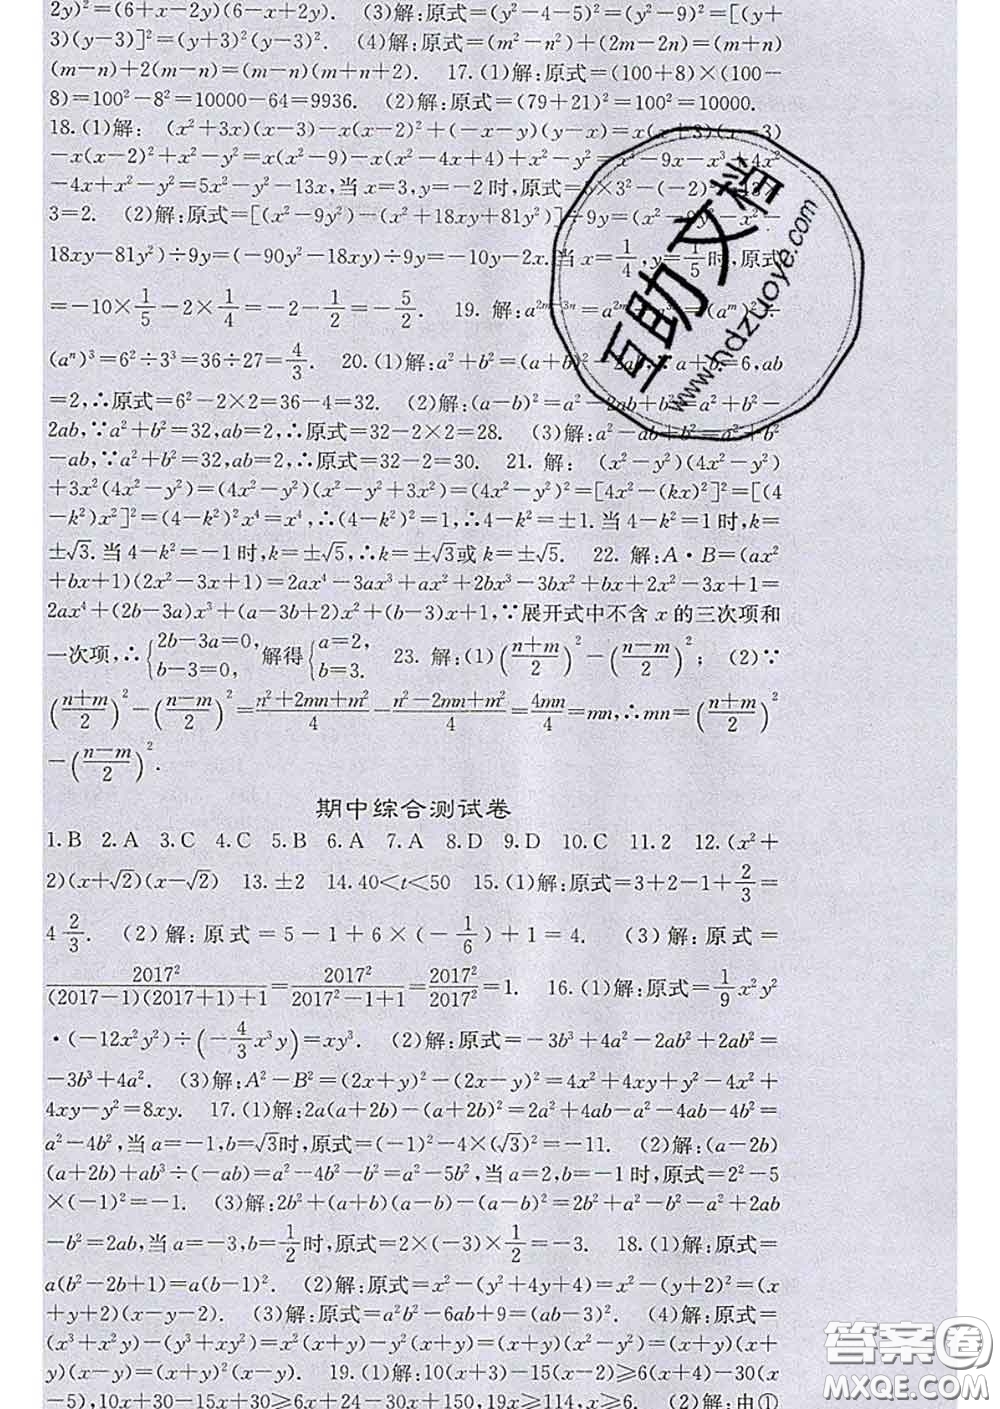 2y)²=(6+x-2y)(6-x+2y). (3)解:原式=(y²-4-5)²=(y²-9)²=[(y+
3)(y-3)]²=(y+3)²(y-3)². (4)解:原式=(m²-n²)+(2m-2n)=(m+n)
(m-n)+2(m-n)=(m-n)(m+n+2). 17.(1)解:原式=(100+8)×(100-
8)=100²-8²=10000-64=9936. (2)解:原式=(79+21)²=100²=10000.
18.(1)解: (x²+3x)(x-3)-x(x-2)²+(-x-y)(y-x)=x(x+3)(x-3)
-x(x-2)²+x²-y²=x(x²-9)-x(x²-4x+4)+x²-y²=x³-9x-x³+4x²
-4x+x²-y²=5x²-y²-13x,当x=3,y=-2时,原式=5×3²-(-2)²-13×
3=2. (2)解:原式=[(x²-9y²)-(x²+18xy+81y²)]÷9y=(x²-9y²-x²-
18xy-81y²)÷9y=(-90y²-18xy)÷9y=-10y-2x.当x=1/4,y=1/5时,原式
=-10×1/5-2×1/4=-2-1/2=-5/2. 19. 解:a^(2m-3n)=a^(2m) (a^m)²÷
(aⁿ)³=6²÷3³=36÷27=4/3. 20.(1)解:a²+b²=(a+b)²-2ab,∵a+b=6,ab
=2,∴原式=6²-2×2=36-4=32. (2)解:(a-b)²=a²-2ab+b²=a²+b²-
2ab,∵a²+b²=32,ab=2,∴原式=32-2×2=28. (3)解:a²-ab+b²=a²+b²
-ab,∵a²+b²=32,ab=2,∴原式=32-2=30. 21. 解: (x²-y²)(4x²-y²)
+3x²(4x²-y²)=(4x²-y²)(x²-y²+3x²)=(4x²-y²)²=[4x²-(kx)²]²=[(4
-k²)x²]²=(4-k²)²x⁴=x⁴,∴(4-k²)²=1,∴4-k²=±1.当4-k²=1时,k=
±√3.当4-k²=-1时,k=±√5,∴k=±√3或k=±√5. 22. 解:A·B=(ax²
+bx+1)(2x²-3x+1)=2ax⁴-3ax³+ax²+2bx³-3bx²+bx+2x²-3x+1=
2ax⁴+(2b-3a)x³+(a-3b+2)x²+(b-3)x+1,∵展开式中不含x的三次项和
一次项,∴{2b-3a=0, b-3=0, 解得{a=2, b=3. 23. 解:(1)((n+m)/2)²-((n-m)/2)²; (2)∵
((n+m)/2)²-((n-m)/2)²=(n²+2mn+m²)/4-(n²-2mn+m²)/4=4mn/4=mn,∴mn=((n+m)/2)²
-((n-m)/2)².
期中综合测试卷
1.B 2.A 3.C 4.C 5.B 6.A 7.A 8.D 9.D 10.C 11.2 12.(x²+
2)(x+√2)(x-√2) 13.±2 14.40<t<50 15.(1)解:原式=3+2-1+2/3=
4 2/3. (2)解:原式=5-1+6×(-1/6)+1=4. (3)解:原式=
2017²/((2017-1)(2017+1)+1)=2017²/(2017²-1+1)=2017²/2017²=1. 16.(1)解:原式=1/9x²y²
·(-12x²y²)÷(-4/3x³y)=xy³. (2)解:原式=-3b³+4a²-2ab²+2ab²=
-3b³+4a². (3)解:A²-B²=(2x+y)²-(2x-y)²=4x²+4xy+y²-4x²+
4xy-y²=8xy. 17.(1)解:2a(a+2b)-(a+2b)²=2a²+4ab-a²-4ab-4b²=
a²-4b²,当a=-1,b=√3时,原式=(-1)²-4×(√3)²=-11. (2)解:(a-2b)
(a+2b)+ab³÷(-ab)=a²-4b²-b²=a²-5b²,当a=2,b=-1时,原式=2²-5
×(-1)²=-1. (3)解:2b²+(a+b)(a-b)-(a-b)²=2b²+a²-b²-a²+2ab
-b²=2ab,当a=-3,b=1/2时,原式=2×(-3)×1/2=-3. 18.(1)解:原式=
a(b²-2b+1)=a(b-1)². (2)解:原式=x²-(y²+4y+4)=x²-(y+2)²=(x
+y+2)(x-y-2). (3)解:原式=a²b²-6ab+9=(ab-3)². (4)解:原式=
(x³+x²y)-(y³+xy²)=x²(x+y)-y²(x+y)=(x+y)(x²-y²)=(x+y)(x+
y)(x-y)=(x+y)²(x-y). 19.(1)解:10(x+3)-15(x-2)≥6(x+4)-30(x
-5),10x+30-15x+30≥6x+24-30x+150,19x≥114,x≥6. (2)解:由①
互助文档
www.hdzuoye.com
答案圈
MXQE.COM